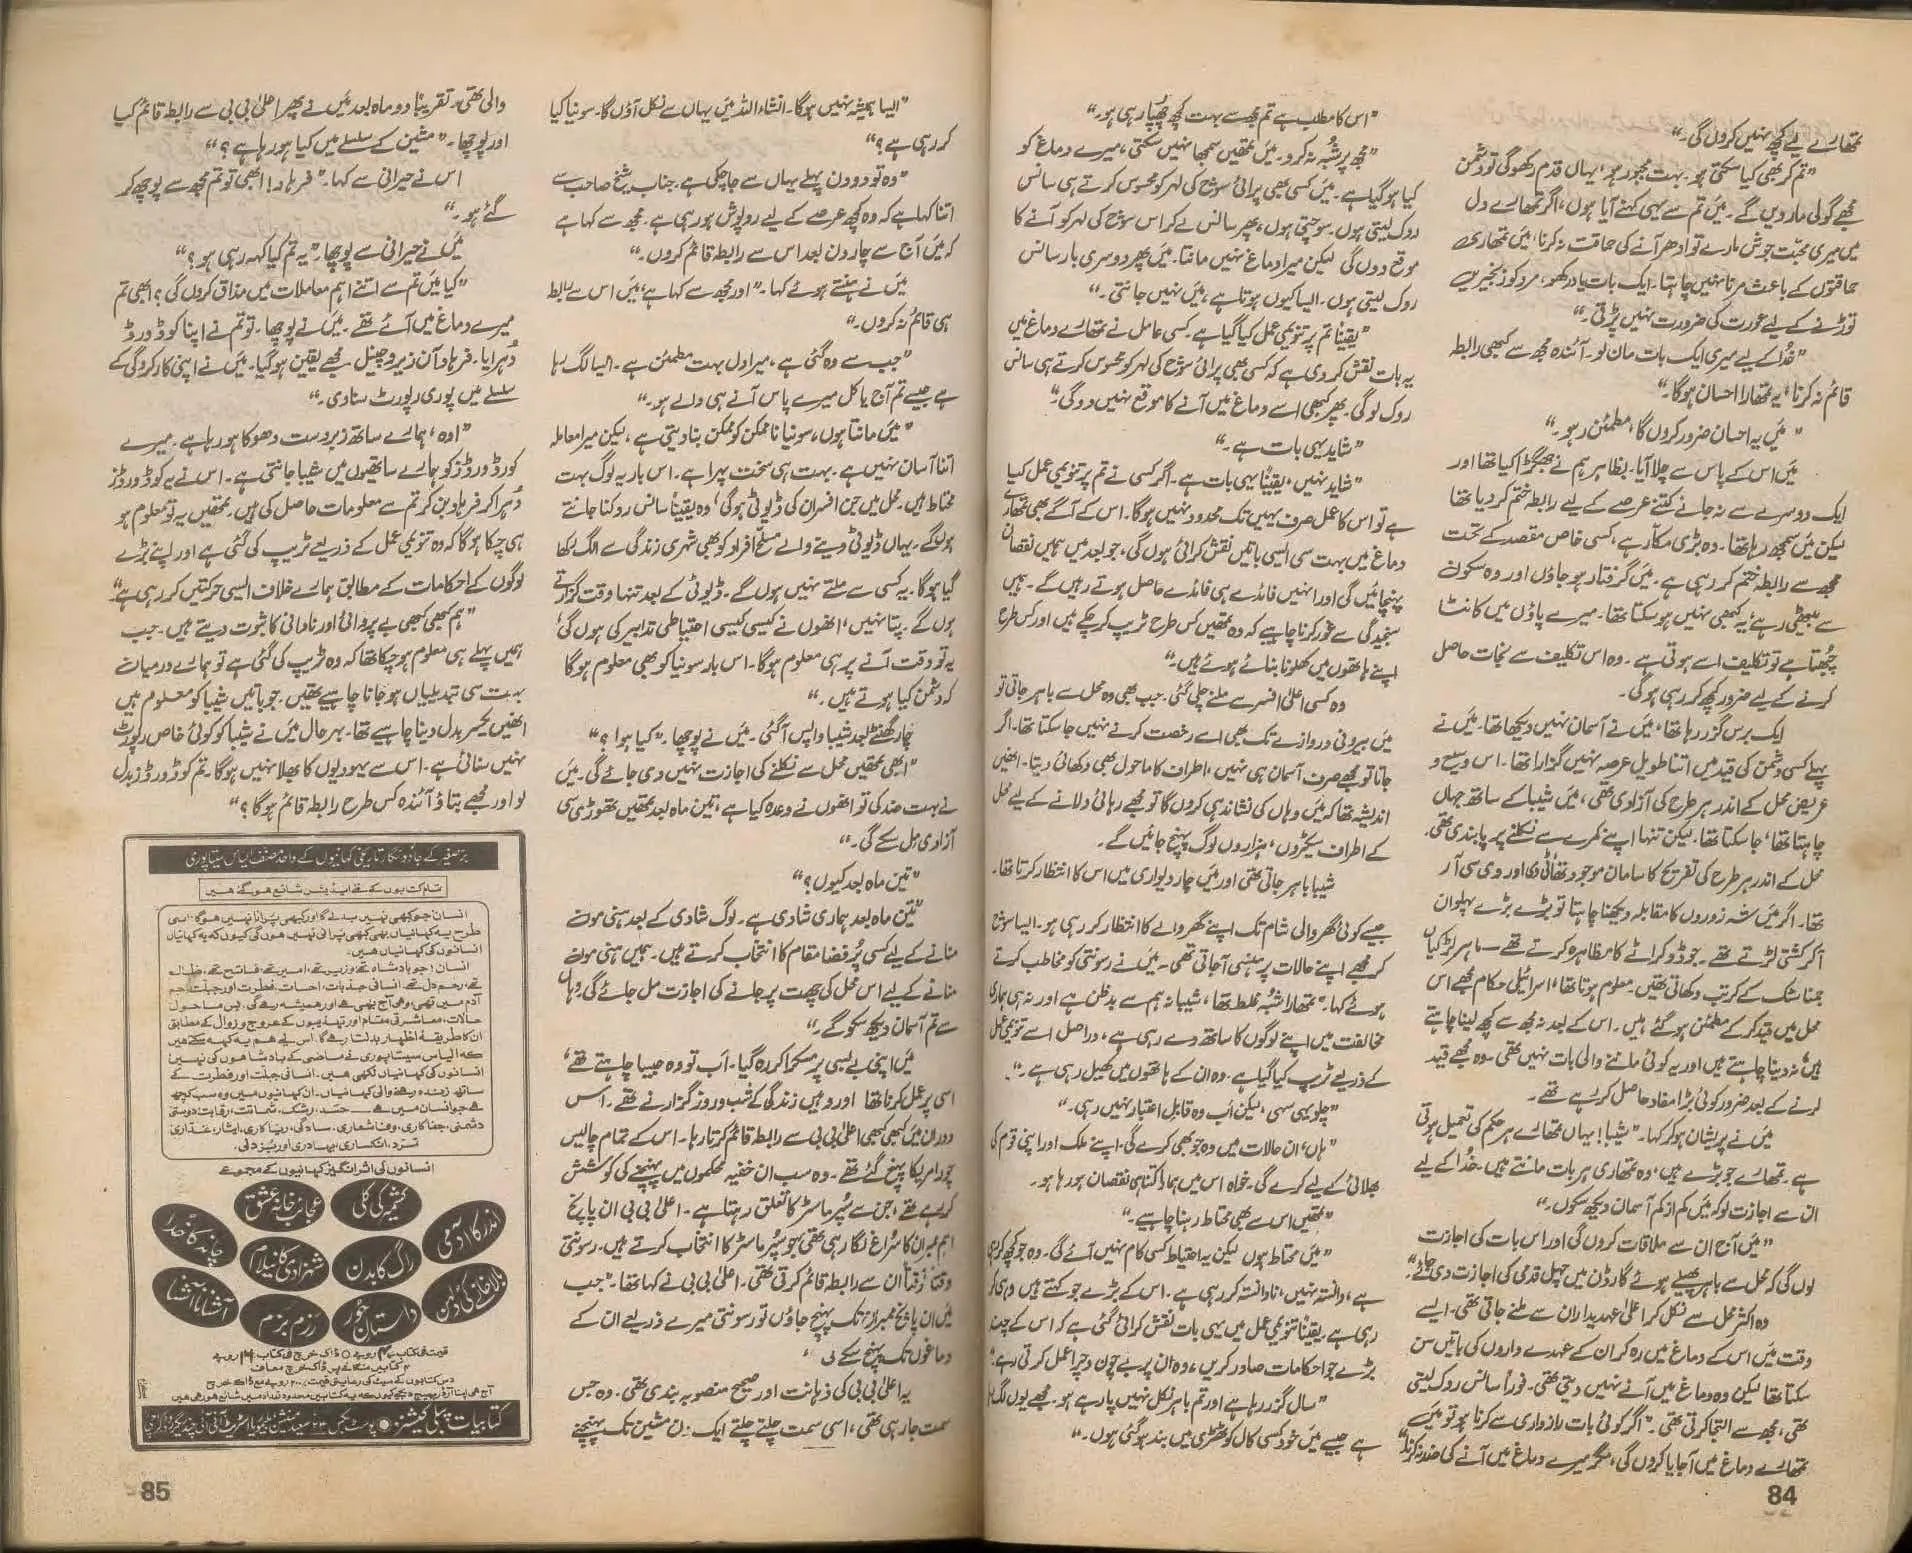 تمھارے لیے کچھ نہیں کروں گی۔“
”تم کر بھی کیا سکتی ہو۔ بہت مجبور ہو، یہاں قدم رکھو گی تو دشمن
مجھے گولی مار دیں گے۔ میں تم سے یہی کہنے آیا ہوں، اگر تمھارے دل
میں میری محبت جوش مارے تو ادھر آنے کی حماقت نہ کرنا، میں تمھاری
حماقتوں کے باعث مرنا نہیں چاہتا۔ ایک بات یاد رکھو، مرد کو زنجیریں
توڑنے کے لیے عورت کی ضرورت نہیں پڑتی۔“
”خدا کے لیے میری ایک بات مان لو۔ آئندہ مجھ سے کبھی رابطہ
قائم نہ کرنا، یہ تمھارا احسان ہوگا۔“
”میں یہ احسان ضرور کروں گا، مطمئن رہو۔“
میں اس کے پاس سے چلا آیا۔ بظاہر ہم نے جھگڑا کیا تھا اور
ایک دوسرے سے نہ جانے کتنے عرصے کے لیے رابطہ ختم کر دیا تھا
لیکن میں سمجھ رہا تھا۔ وہ بڑی مکار ہے، کسی خاص مقصد کے تحت
مجھ سے رابطہ ختم کر رہی ہے۔ میں گرفتار ہو جاؤں اور وہ سکون
سے بیٹھی رہے، یہ کبھی نہیں ہو سکتا تھا۔ میرے پاؤں میں کانٹا
چبھتا ہے تو تکلیف اسے ہوتی ہے۔ وہ اس تکلیف سے نجات حاصل
کرنے کے لیے ضرور کچھ کر رہی ہو گی۔
ایک برس گزر رہا تھا، میں نے آسمان نہیں دیکھا تھا۔ میں نے
پہلے کسی دشمن کی قید میں اتنا طویل عرصہ نہیں گزارا تھا۔ اس وسیع و
عریض محل کے اندر ہر طرح کی آزادی تھی، میں شیبا کے ساتھ جہاں
چاہتا تھا، جا سکتا تھا۔ لیکن تنہا اپنے کمرے سے نکلنے پر پابندی تھی۔
محل کے اندر ہر طرح کی تفریح کا سامان موجود تھا، ٹی وی اور وی سی آر
تھا۔ اگر میں شہ زوروں کا مقابلہ دیکھنا چاہتا تو بڑے بڑے پہلوان
آ کر کشتی لڑتے تھے۔ جوڈو کراٹے کا مظاہرہ کرتے تھے۔ ماہر لڑکیاں
جمناسٹک کے کرتب دکھاتی تھیں۔ معلوم ہوتا تھا، اسرائیلی حکام مجھے اس
محل میں قید کر کے مطمئن ہو گئے ہیں۔ اس کے بعد نہ مجھ سے کچھ لینا چاہتے
ہیں، نہ دینا چاہتے ہیں اور یہ کوئی ماننے والی بات نہیں تھی۔ وہ مجھے قید
کرنے کے بعد ضرور کوئی بڑا مفاد حاصل کر رہے تھے۔
میں نے پریشان ہو کر کہا۔ ”شیبا! یہاں تمھارے ہر حکم کی تعمیل ہوتی
ہے۔ تمھارے جو بڑے ہیں، وہ تمھاری ہر بات مانتے ہیں۔ خدا کے لیے
ان سے اجازت لو کہ میں کم از کم آسمان دیکھ سکوں۔“
”میں آج ان سے ملاقات کروں گی اور اس بات کی اجازت
لوں گی کہ محل سے باہر پھیلے ہوئے گارڈن میں چہل قدمی کی اجازت دی جائے۔“
وہ اکثر محل سے نکل کر اعلیٰ عہدیداران سے ملنے جاتی تھی۔ ایسے
وقت میں اس کے دماغ میں رہ کر ان کے عہدے داروں کی باتیں سن
سکتا تھا لیکن وہ دماغ میں آنے نہیں دیتی تھی۔ فوراً سانس روک لیتی
تھی، مجھ سے التجا کرتی تھی۔ ”اگر کوئی بات رازداری سے کرنا ہو تو میں
تمھارے دماغ میں آ جایا کروں گی، مگر میرے دماغ میں آنے کی ضد نہ کرنا“
84
”اس کا مطلب ہے تم مجھ سے بہت کچھ چھپا رہی ہو۔“
”مجھ پر شبہ نہ کرو۔ میں تمھیں سمجھا نہیں سکتی، میرے دماغ کو
کیا ہو گیا ہے۔ میں کسی بھی پرائی سوچ کی لہر کو محسوس کرتے ہی سانس
روک لیتی ہوں۔ سوچتی ہوں، پھر سانس لے کر اس سوچ کی لہر کو آنے کا
موقع دوں گی لیکن میرا دماغ نہیں مانتا۔ میں پھر دوسری بار سانس
روک لیتی ہوں۔ ایسا کیوں ہوتا ہے، میں نہیں جانتی۔“
”یقیناً تم پر تنویمی عمل کیا گیا ہے۔ کسی عامل نے تمھارے دماغ میں
یہ بات نقش کر دی ہے کہ کسی بھی پرائی سوچ کی لہر کو محسوس کرتے ہی سانس
روک لو گی۔ پھر کبھی اسے دماغ میں آنے کا موقع نہیں دو گی۔“
”شاید یہی بات ہے۔“
”شاید نہیں، یقیناً یہی بات ہے۔ اگر کسی نے تم پر تنویمی عمل کیا
ہے تو اس کا عمل صرف یہیں تک محدود نہیں ہوگا۔ اس کے آگے بھی تمھارے
دماغ میں بہت سی ایسی باتیں نقش کرائی ہوں گی، جو بعد میں ہمیں نقصان
پہنچائیں گی اور انہیں فائدے ہی فائدے حاصل ہوتے رہیں گے۔ ہمیں
سنجیدگی سے غور کرنا چاہیے کہ وہ تمھیں کس طرح ٹریپ کر چکے ہیں اور کس طرح
اپنے ہاتھوں میں کھلونا بنائے ہوئے ہیں۔“
وہ کسی اعلیٰ افسر سے ملنے چلی گئی۔ جب بھی وہ محل سے باہر جاتی تو
میں بیرونی دروازے تک بھی اسے رخصت کرنے نہیں جا سکتا تھا۔ اگر
جاتا تو مجھے صرف آسمان ہی نہیں، اطراف کا ماحول بھی دکھائی دیتا۔ انھیں
اندیشہ تھا کہ میں وہاں کی نشاندہی کروں گا تو مجھے رہائی دلانے کے لیے محل
کے اطراف سیکڑوں، ہزاروں لوگ پہنچ جائیں گے۔
شیبا باہر جاتی تھی اور میں چار دیواری میں اس کا انتظار کرتا تھا۔
جیسے کوئی گھر والی شام تک اپنے گھر والے کا انتظار کر رہی ہو۔ ایسا سوچ
کر مجھے اپنے حالات پر ہنسی آ جاتی تھی۔ میں نے رسونتی کو مخاطب کرتے
ہوئے کہا۔ ”تمھارا شبہ غلط تھا، شیبا نہ ہم سے بدظن ہے اور نہ ہی ہماری
مخالفت میں اپنے لوگوں کا ساتھ دے رہی ہے، دراصل اسے تنویمی عمل
کے ذریعے ٹریپ کیا گیا ہے۔ وہ ان کے ہاتھوں میں کھیل رہی ہے۔“
”چلو یہی سہی، لیکن اب وہ قابلِ اعتبار نہیں رہی۔“
”ہاں، ان حالات میں وہ جو بھی کرے گی، اپنے ملک اور اپنی قوم کی
بھلائی کے لیے کرے گی۔ خواہ اس میں ہمارا کتنا ہی نقصان ہو رہا ہو۔
”تمھیں اس سے بھی محتاط رہنا چاہیے۔“
”میں محتاط ہوں لیکن یہ احتیاط کسی کام نہیں آئے گی۔ وہ جو کچھ کر رہی
ہے، دانستہ نہیں، نادانستہ کر رہی ہے۔ اس کے بڑے جو کہتے ہیں وہی کر
رہی ہے۔ یقیناً تنویمی عمل میں یہی بات نقش کرائی گئی ہے کہ اس کے چند
بڑے جو احکامات صادر کریں، وہ ان پر بے چون و چرا عمل کرتی رہے۔“
”سال گزر رہا ہے اور تم باہر نکل نہیں پا رہے ہو۔ مجھے یوں لگ رہا
ہے جیسے میں خود کسی کال کوٹھڑی میں بند ہو گئی ہوں۔“
”ایسا ہمیشہ نہیں ہوگا۔ انشاء اللہ میں یہاں سے نکل آؤں گا۔ سونیا کیا
کر رہی ہے؟“
”وہ تو دو دن پہلے یہاں سے جا چکی ہے۔ جناب شیخ صاحب سے
اتنا کہا ہے کہ وہ کچھ عرصے کے لیے روپوش ہو رہی ہے۔ مجھ سے کہا ہے
کہ میں آج سے چار دن بعد اس سے رابطہ قائم کروں۔“
میں نے ہنستے ہوئے کہا۔ ”اور مجھ سے کہا ہے، میں اس سے رابطہ
ہی قائم نہ کروں۔“
”جب سے وہ گئی ہے، میرا دل بہت مطمئن ہے۔ ایسا لگ رہا
ہے جیسے تم آج یا کل میرے پاس آنے ہی والے ہو۔“
”میں مانتا ہوں، سونیا ناممکن کو ممکن بنا دیتی ہے، لیکن میرا معاملہ
اتنا آسان نہیں ہے۔ بہت ہی سخت پہرا ہے۔ اس بار یہ لوگ بہت
محتاط ہیں۔ محل میں جن افسران کی ڈیوٹی ہو گی، وہ یقیناً سانس روکنا جانتے
ہوں گے۔ یہاں ڈیوٹی دینے والے مسلح افراد کو بھی شہری زندگی سے الگ رکھا
گیا ہوگا۔ یہ کسی سے ملتے نہیں ہوں گے۔ ڈیوٹی کے بعد تنہا وقت گزارتے
ہوں گے۔ پتا نہیں، انھوں نے کیسی کیسی احتیاطی تدابیر کی ہوں گی،
یہ تو وقت آنے پر ہی معلوم ہوگا۔ اس بار سونیا کو بھی معلوم ہوگا
کہ دشمن کیا ہوتے ہیں۔“
چار گھنٹے بعد شیبا واپس آ گئی۔ میں نے پوچھا۔ ”کیا ہوا؟“
”ابھی تمھیں محل سے نکلنے کی اجازت نہیں دی جائے گی۔ میں
نے بہت ضد کی تو انھوں نے وعدہ کیا ہے، تین ماہ بعد تمھیں تھوڑی سی
آزادی مل سکے گی۔“
”تین ماہ بعد کیوں؟“
”تین ماہ بعد ہماری شادی ہے۔ لوگ شادی کے بعد ہنی مون
منانے کے لیے کسی پُر فضا مقام کا انتخاب کرتے ہیں۔ ہمیں ہنی مون
منانے کے لیے اس محل کی چھت پر جانے کی اجازت مل جائے گی۔ وہاں
سے تم آسمان دیکھ سکو گے۔“
میں اپنی بے بسی پر مسکرا کر رہ گیا۔ اب تو وہ جیسا چاہتے تھے،
اسی پر عمل کرنا تھا اور وہیں زندگی کے شب و روز گزارنے تھے۔ اس
دوران میں کبھی کبھی اعلیٰ بی بی سے رابطہ قائم کرتا رہا۔ اس کے تمام چالیس
چور امریکا پہنچ گئے تھے۔ وہ سب ان خفیہ محکموں میں پہنچنے کی کوشش
کر رہے تھے، جن سے سُپر ماسٹر کا تعلق رہتا ہے۔ اعلیٰ بی بی ان پانچ
اہم ممبران کا سراغ لگا رہی تھی جو سُپر ماسٹر کا انتخاب کرتے ہیں۔ رسونتی
وقتاً فوقتاً ان سے رابطہ قائم کرتی تھی۔ اعلیٰ بی بی نے کہا تھا۔ ”جب
میں ان پانچ ممبران تک پہنچ جاؤں تو رسونتی میرے ذریعے ان کے
دماغوں تک پہنچ سکے گی“
یہ اعلیٰ بی بی کی ذہانت اور صحیح منصوبہ بندی تھی۔ وہ جس
سمت جا رہی تھی، اسی سمت چلتے چلتے ایک دن مشین تک پہنچنے
والی تھی۔ تقریباً دو ماہ بعد میں نے پھر اعلیٰ بی بی سے رابطہ قائم کیا
اور پوچھا۔ ”مشین کے سلسلے میں کیا ہو رہا ہے؟“
اس نے حیرانی سے کہا۔ ”فرہاد! ابھی تو تم مجھ سے پوچھ کر
گئے ہو۔“
میں نے حیرانی سے پوچھا۔ ”یہ تم کیا کہہ رہی ہو؟“
”کیا میں تم سے اتنے اہم معاملات میں مذاق کروں گی؟ ابھی تم
میرے دماغ میں آئے تھے۔ میں نے پوچھا۔ تو تم نے اپنا کوڈ ورڈ
دُہرایا۔ فرہاد آن زیرو چینل۔ مجھے یقین ہو گیا۔ میں نے اپنی کارکردگی کے
سلسلے میں پوری رپورٹ سنا دی۔“
”اوہ، ہمارے ساتھ زبردست دھوکا ہو رہا ہے۔ میرے
کوڈ ورڈز کو ہمارے ساتھیوں میں شیبا جانتی ہے۔ اس نے یہ کوڈ ورڈز
دُہرا کر فرہاد بن کر تم سے معلومات حاصل کی ہیں۔ تمھیں یہ تو معلوم ہو
ہی چکا ہوگا کہ وہ تنویمی عمل کے ذریعے ٹریپ کی گئی ہے اور اپنے بڑے
لوگوں کے احکامات کے مطابق ہمارے خلاف ایسی حرکتیں کر رہی ہے“
”ہم کبھی کبھی بے پروائی اور نادانی کا ثبوت دیتے ہیں۔ جب
ہمیں پہلے ہی معلوم ہو چکا تھا کہ وہ ٹریپ کی گئی ہے تو ہمارے درمیان
بہت سی تبدیلیاں ہو جانا چاہیے تھیں۔ جو باتیں شیبا کو معلوم ہیں
انھیں یکسر بدل دینا چاہیے تھا۔ بہرحال میں نے شیبا کو کوئی خاص رپورٹ
نہیں سنائی ہے۔ اس سے یہودیوں کا بھلا نہیں ہوگا۔ تم کوڈ ورڈز بدل
لو اور مجھے بتاؤ آئندہ کس طرح رابطہ قائم ہوگا؟“
برصغیر کے جادو نگار تاریخی کہانیوں کے واحد مصنف الیاس سیتاپوری
تمام کتابوں کے نئے ایڈیشن شائع ہو گئے ہیں
انسان جو کبھی نہیں بدلے گا اور کبھی پرانا نہیں ہوگا۔ اسی
طرح یہ کہانیاں بھی کبھی پرانی نہیں ہوں گی کیوں کہ یہ کہانیاں
انسانوں کی کہانیاں ہیں۔
انسان! جو بادشاہ تھے، وزیر تھے، امیر تھے، فاتح تھے، ظالم
تھے، رحم دل تھے۔ انسانی جذبات، احساسات، فطرت اور جبلت جو
آدم میں تھی، وہی آج بھی ہے اور ہمیشہ رہے گی۔ بس ماحول
حالات، معاشرتی مقام اور تہذیبوں کے عروج و زوال کے مطابق
ان کا طریقۂ اظہار بدلتا رہے گا۔ اس لیے ہم یہ کہہ سکتے ہیں
کہ الیاس سیتاپوری نے ماضی کے بادشاہوں کی نہیں
انسانوں کی کہانیاں لکھی ہیں۔ انسانی جبلت اور فطرت کے
ساتھ زندہ رہنے والی کہانیاں۔ ان کہانیوں میں وہ سب کچھ
ہے جو انسان میں ہے — حسد، رشک، شماتت، رقابت، دوستی
دشمنی، جفاکاری، وفا شعاری۔ سادگی، ریاکاری، ایثار، غداری
تمرد، انکساری، بہادری اور بزدلی۔
انسانوں کی اثر انگیز کہانیوں کے مجموعے
چاند کا خدا
عجائب خانہ عشق
کشمیر کی کلی
اندر کا آدمی
شہزادی کا نیلام
راگ کا بدن
آشنا ناآشنا
رزم بزم
داستانِ حور
بالا خانے کی دلہن
قیمت فی کتاب ۲۰ روپے ○ ڈاک خرچ فی کتاب
۳ کتابیں منگانے پر ڈاک خرچ معاف
دس کتابوں کے سیٹ کی رعایتی قیمت ۲۰۰ روپے مع ڈاک خرچ
آج ہی اپنا آرڈر بھیج دیجیے کیوں کہ یہ کتابیں محدود تعداد میں شائع ہو رہی ہیں
کتابیات پبلی کیشنز ● پوسٹ بکس
85